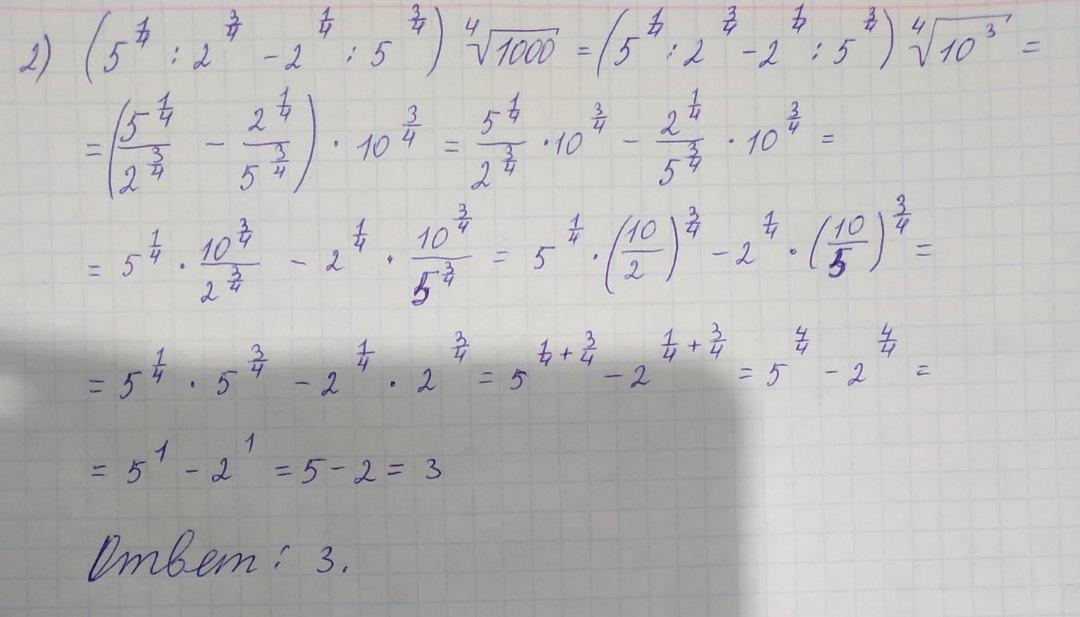 2) (5^{1/4} : 2^{3/4} - 2^{1/4} : 5^{3/4}) ∜1000 = (5^{1/4} : 2^{3/4} - 2^{1/4} : 5^{3/4}) ∜10^3 =
= (5^{1/4}/2^{3/4} - 2^{1/4}/5^{3/4}) · 10^{3/4} = 5^{1/4}/2^{3/4} · 10^{3/4} - 2^{1/4}/5^{3/4} · 10^{3/4} =
= 5^{1/4} · 10^{3/4}/2^{3/4} - 2^{1/4} · 10^{3/4}/5^{3/4} = 5^{1/4} · (10/2)^{3/4} - 2^{1/4} · (10/5)^{3/4} =
= 5^{1/4} · 5^{3/4} - 2^{1/4} · 2^{3/4} = 5^{1/4 + 3/4} - 2^{1/4 + 3/4} = 5^{4/4} - 2^{4/4} =
= 5^1 - 2^1 = 5 - 2 = 3
Ответ: 3.